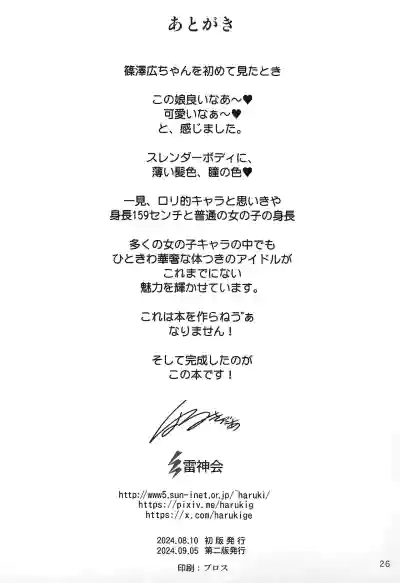 あとがき
篠澤広ちゃんを初めて見たとき
この娘良いなあ～♥
可愛いなぁ～♥
と、感じました。
スレンダーボディに、
薄い髪色、瞳の色♥
一見、ロリ的キャラと思いきや
身長159センチと普通の女の子の身長
多くの女の子キャラの中でも
ひときわ華奢な体つきのアイドルが
これまでにない
魅力を輝かせています。
これは本を作らねう゛ぁ
なりません！
そして完成したのが
この本です！
雷神会
http://www5.sun-inet.or.jp/~haruki/
https://pixiv.me/harukig
https://x.com/harukige
2024.08.10 初版発行
2024.09.05 第二版発行
印刷：プロス
26